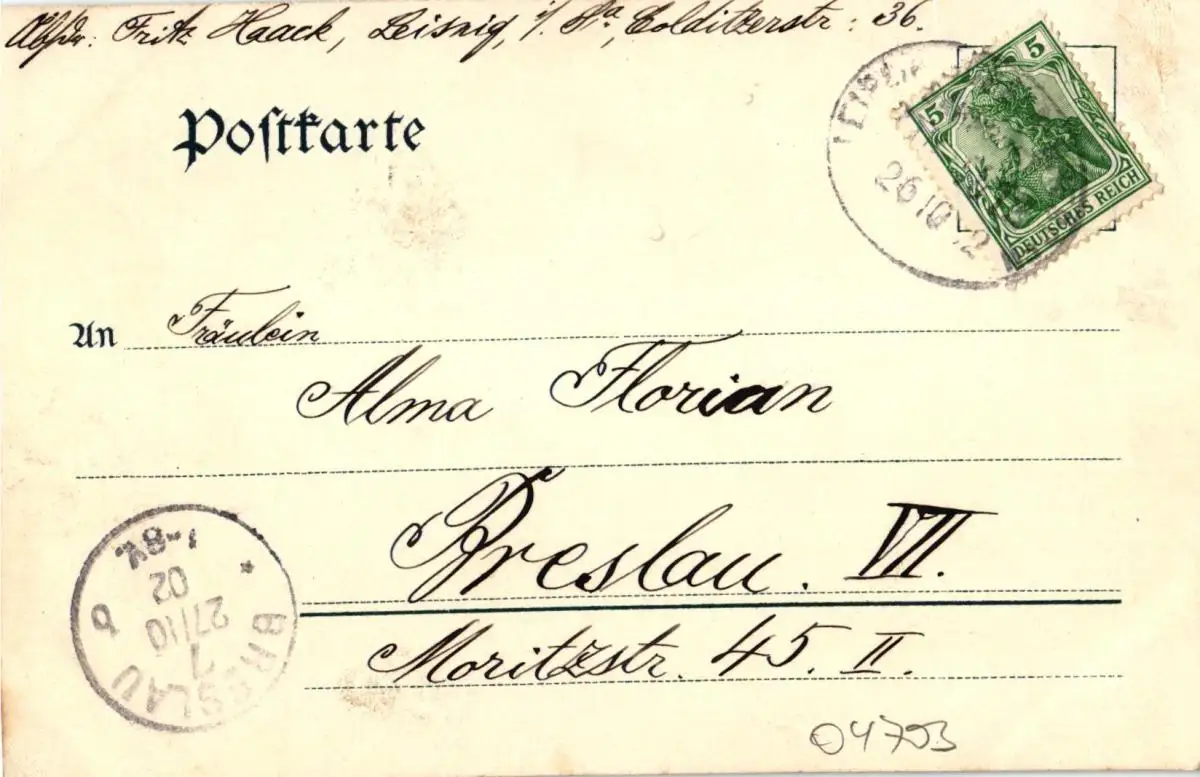 Absdr: Fritz Haack, Leisnig, i/. Sa, Colditzerstr: 36.
Postkarte
5 5
DEUTSCHES REICH
26 10 02
An Fräulein
Alma Florian
Breslau. VII.
Moritzstr. 45. II.
BRESLAU
27/10
02
7-8V.
04793